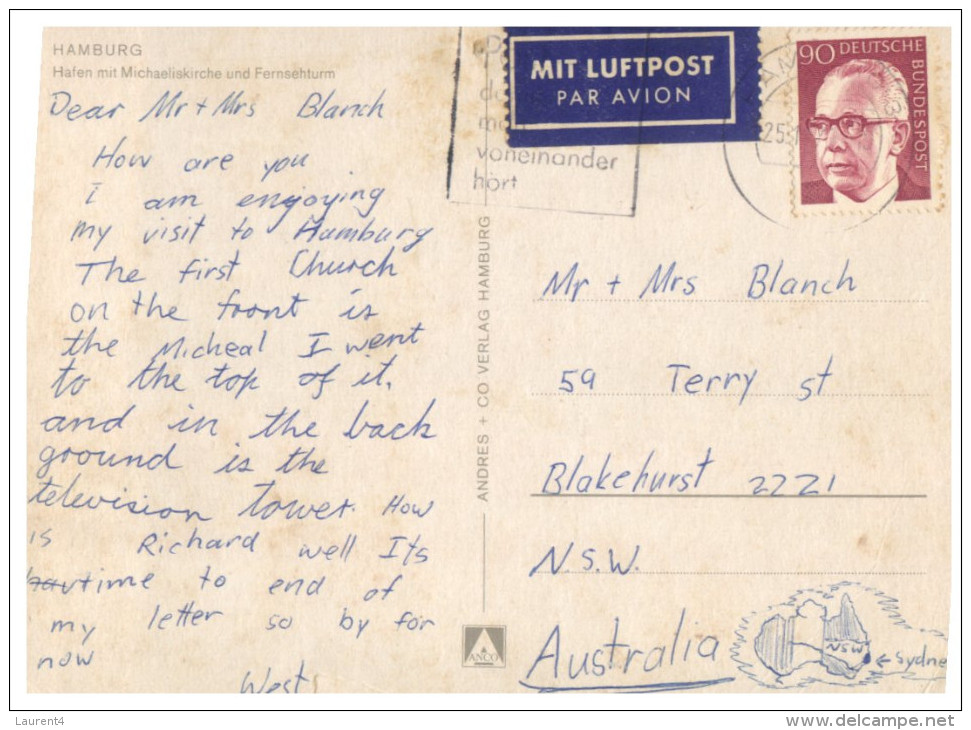 HAMBURG
Hafen mit Michaeliskirche und Fernsehturm
Dear Mr + Mrs Blanch
How are you
I am enjoying
my visit to Hamburg
The first Church
on the front is
the Micheal I went
to the top of it.
and in the back
ground is the
television tower. How
is Richard well Its
time to end of
my letter so by for
now
ANDRES + CO VERLAG HAMBURG
ANCO
voneinander
hört
MIT LUFTPOST
PAR AVION
90 DEUTSCHE
BUNDESPOST
Mr + Mrs Blanch
59 Terry st
Blakehurst 2221
N.S.W.
Australia
NSW
←Sydne
Laurent4
delcampe.net